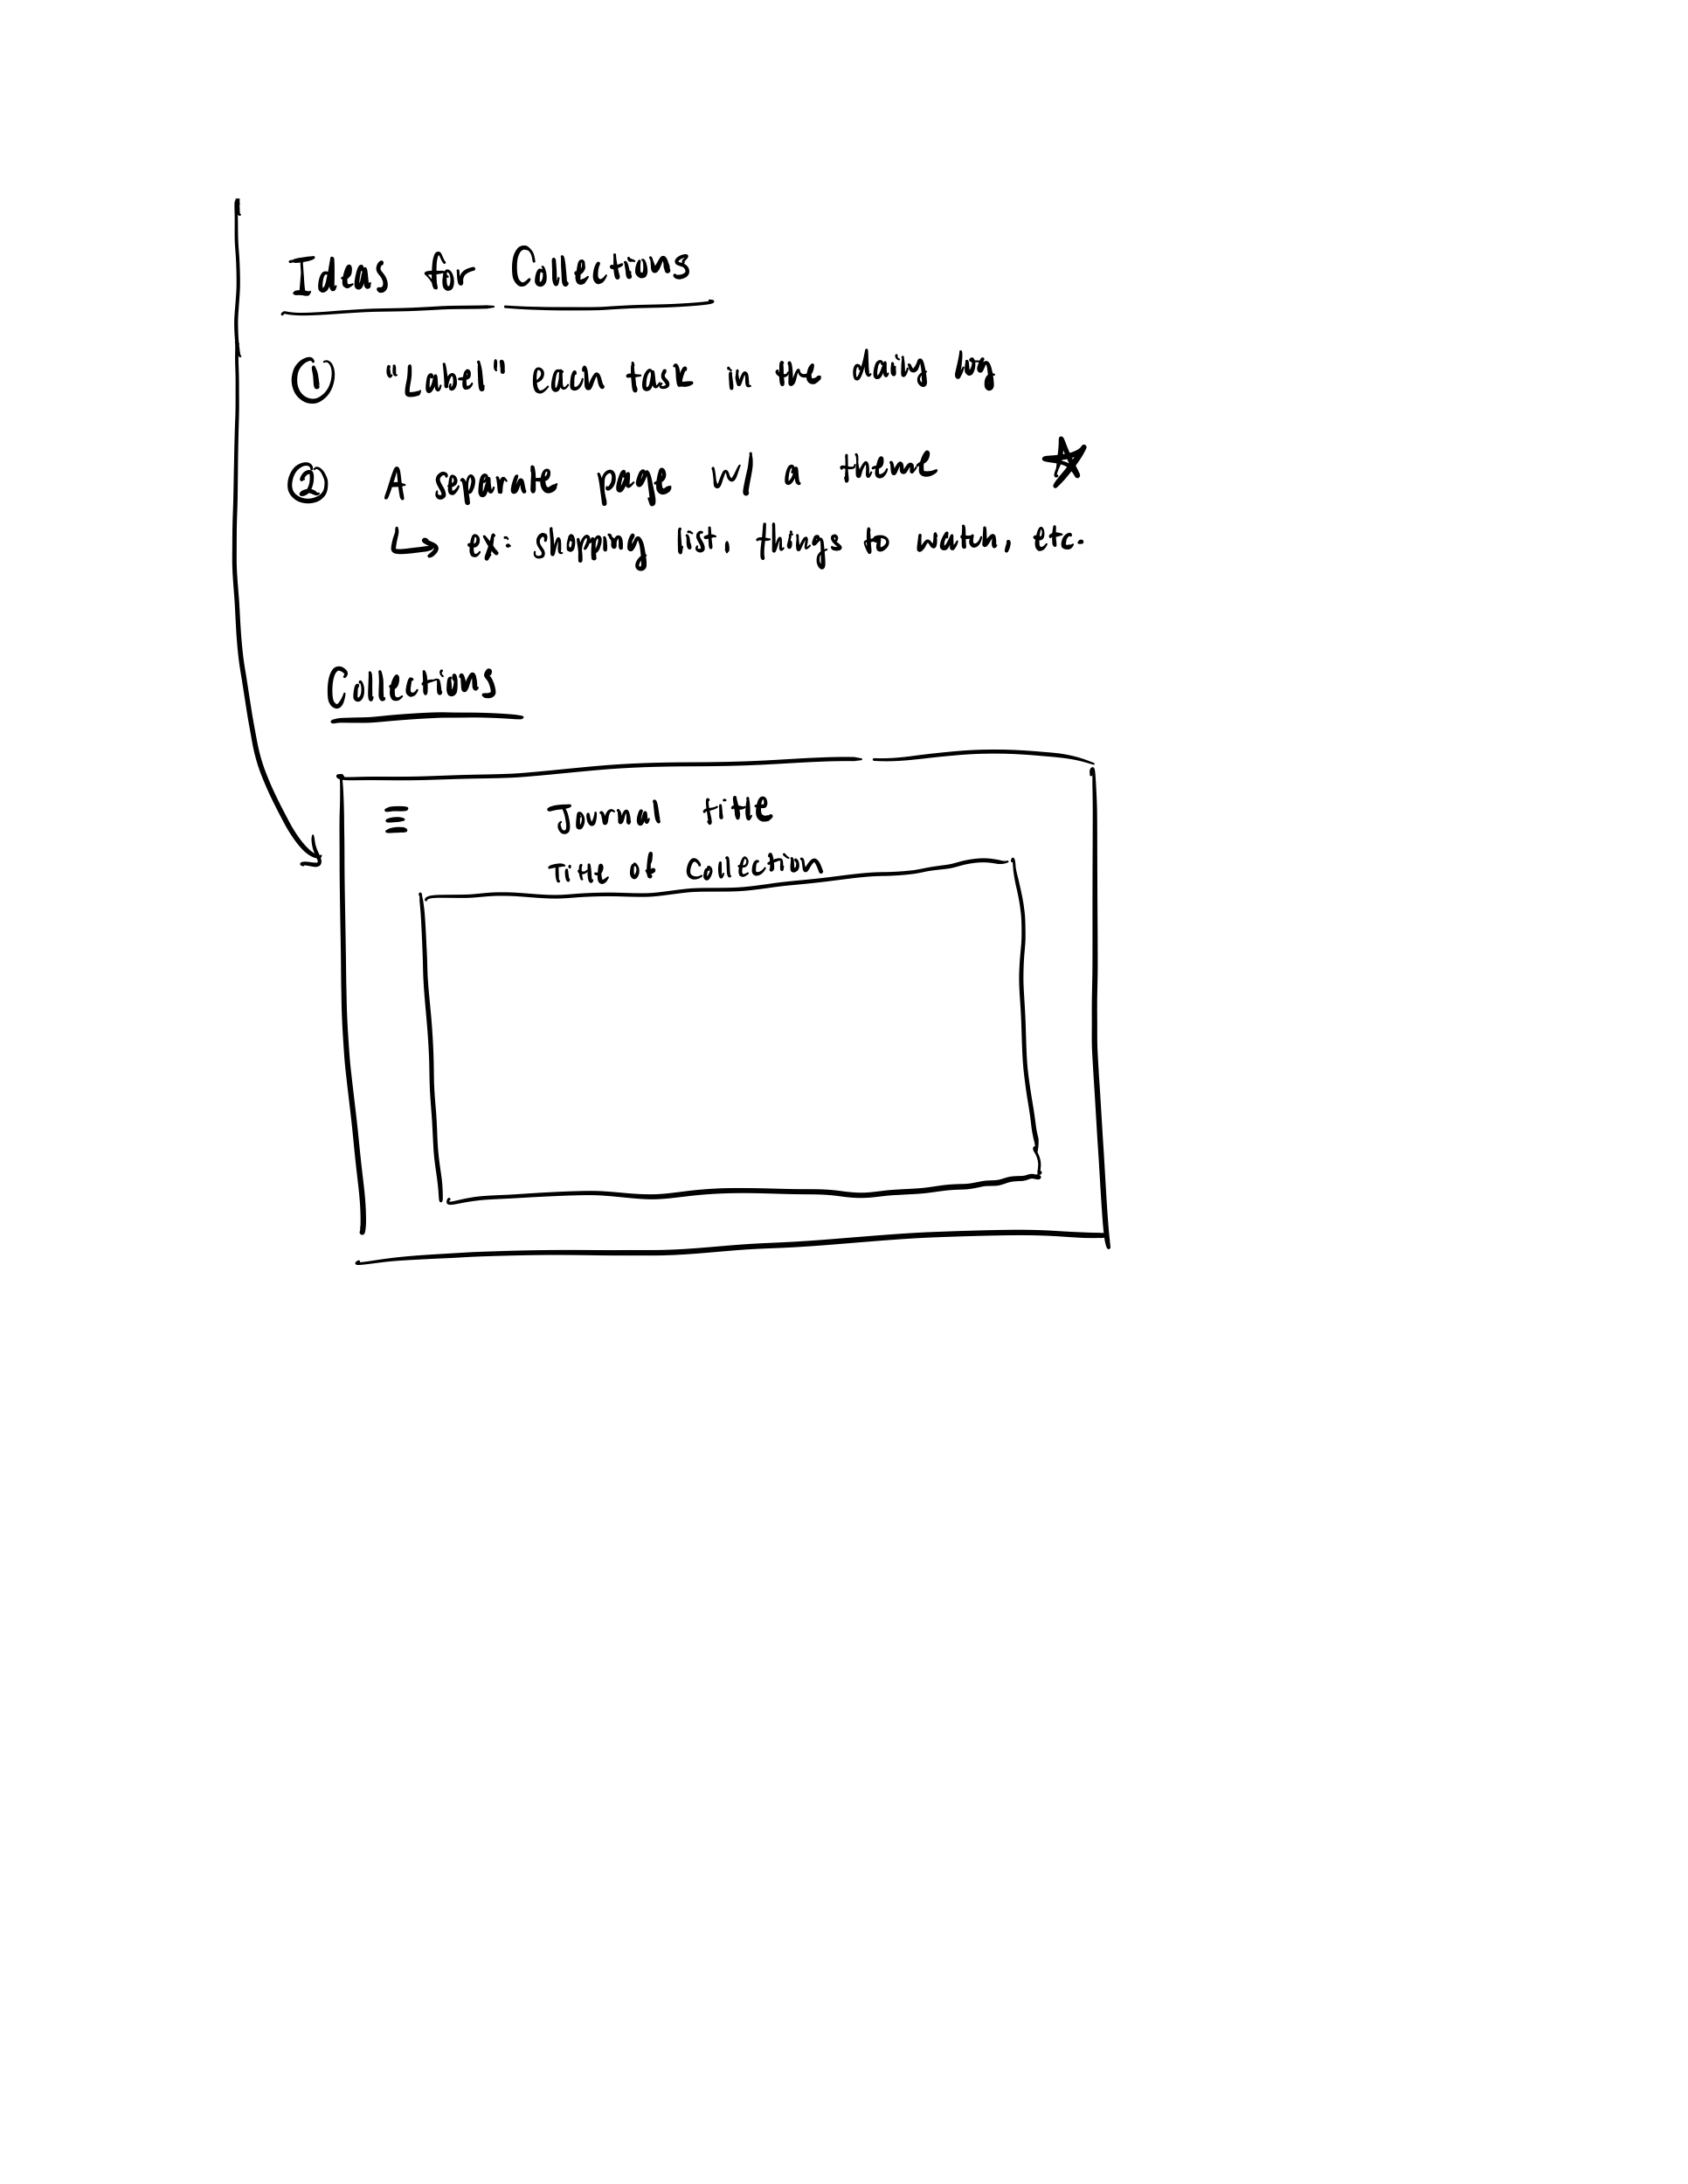 Ideas for Collections
① "Label" each task in the daily log
② A separate page w/ a theme
ex: shopping list, things to watch, etc.
Collections
Journal title
Title of Collection